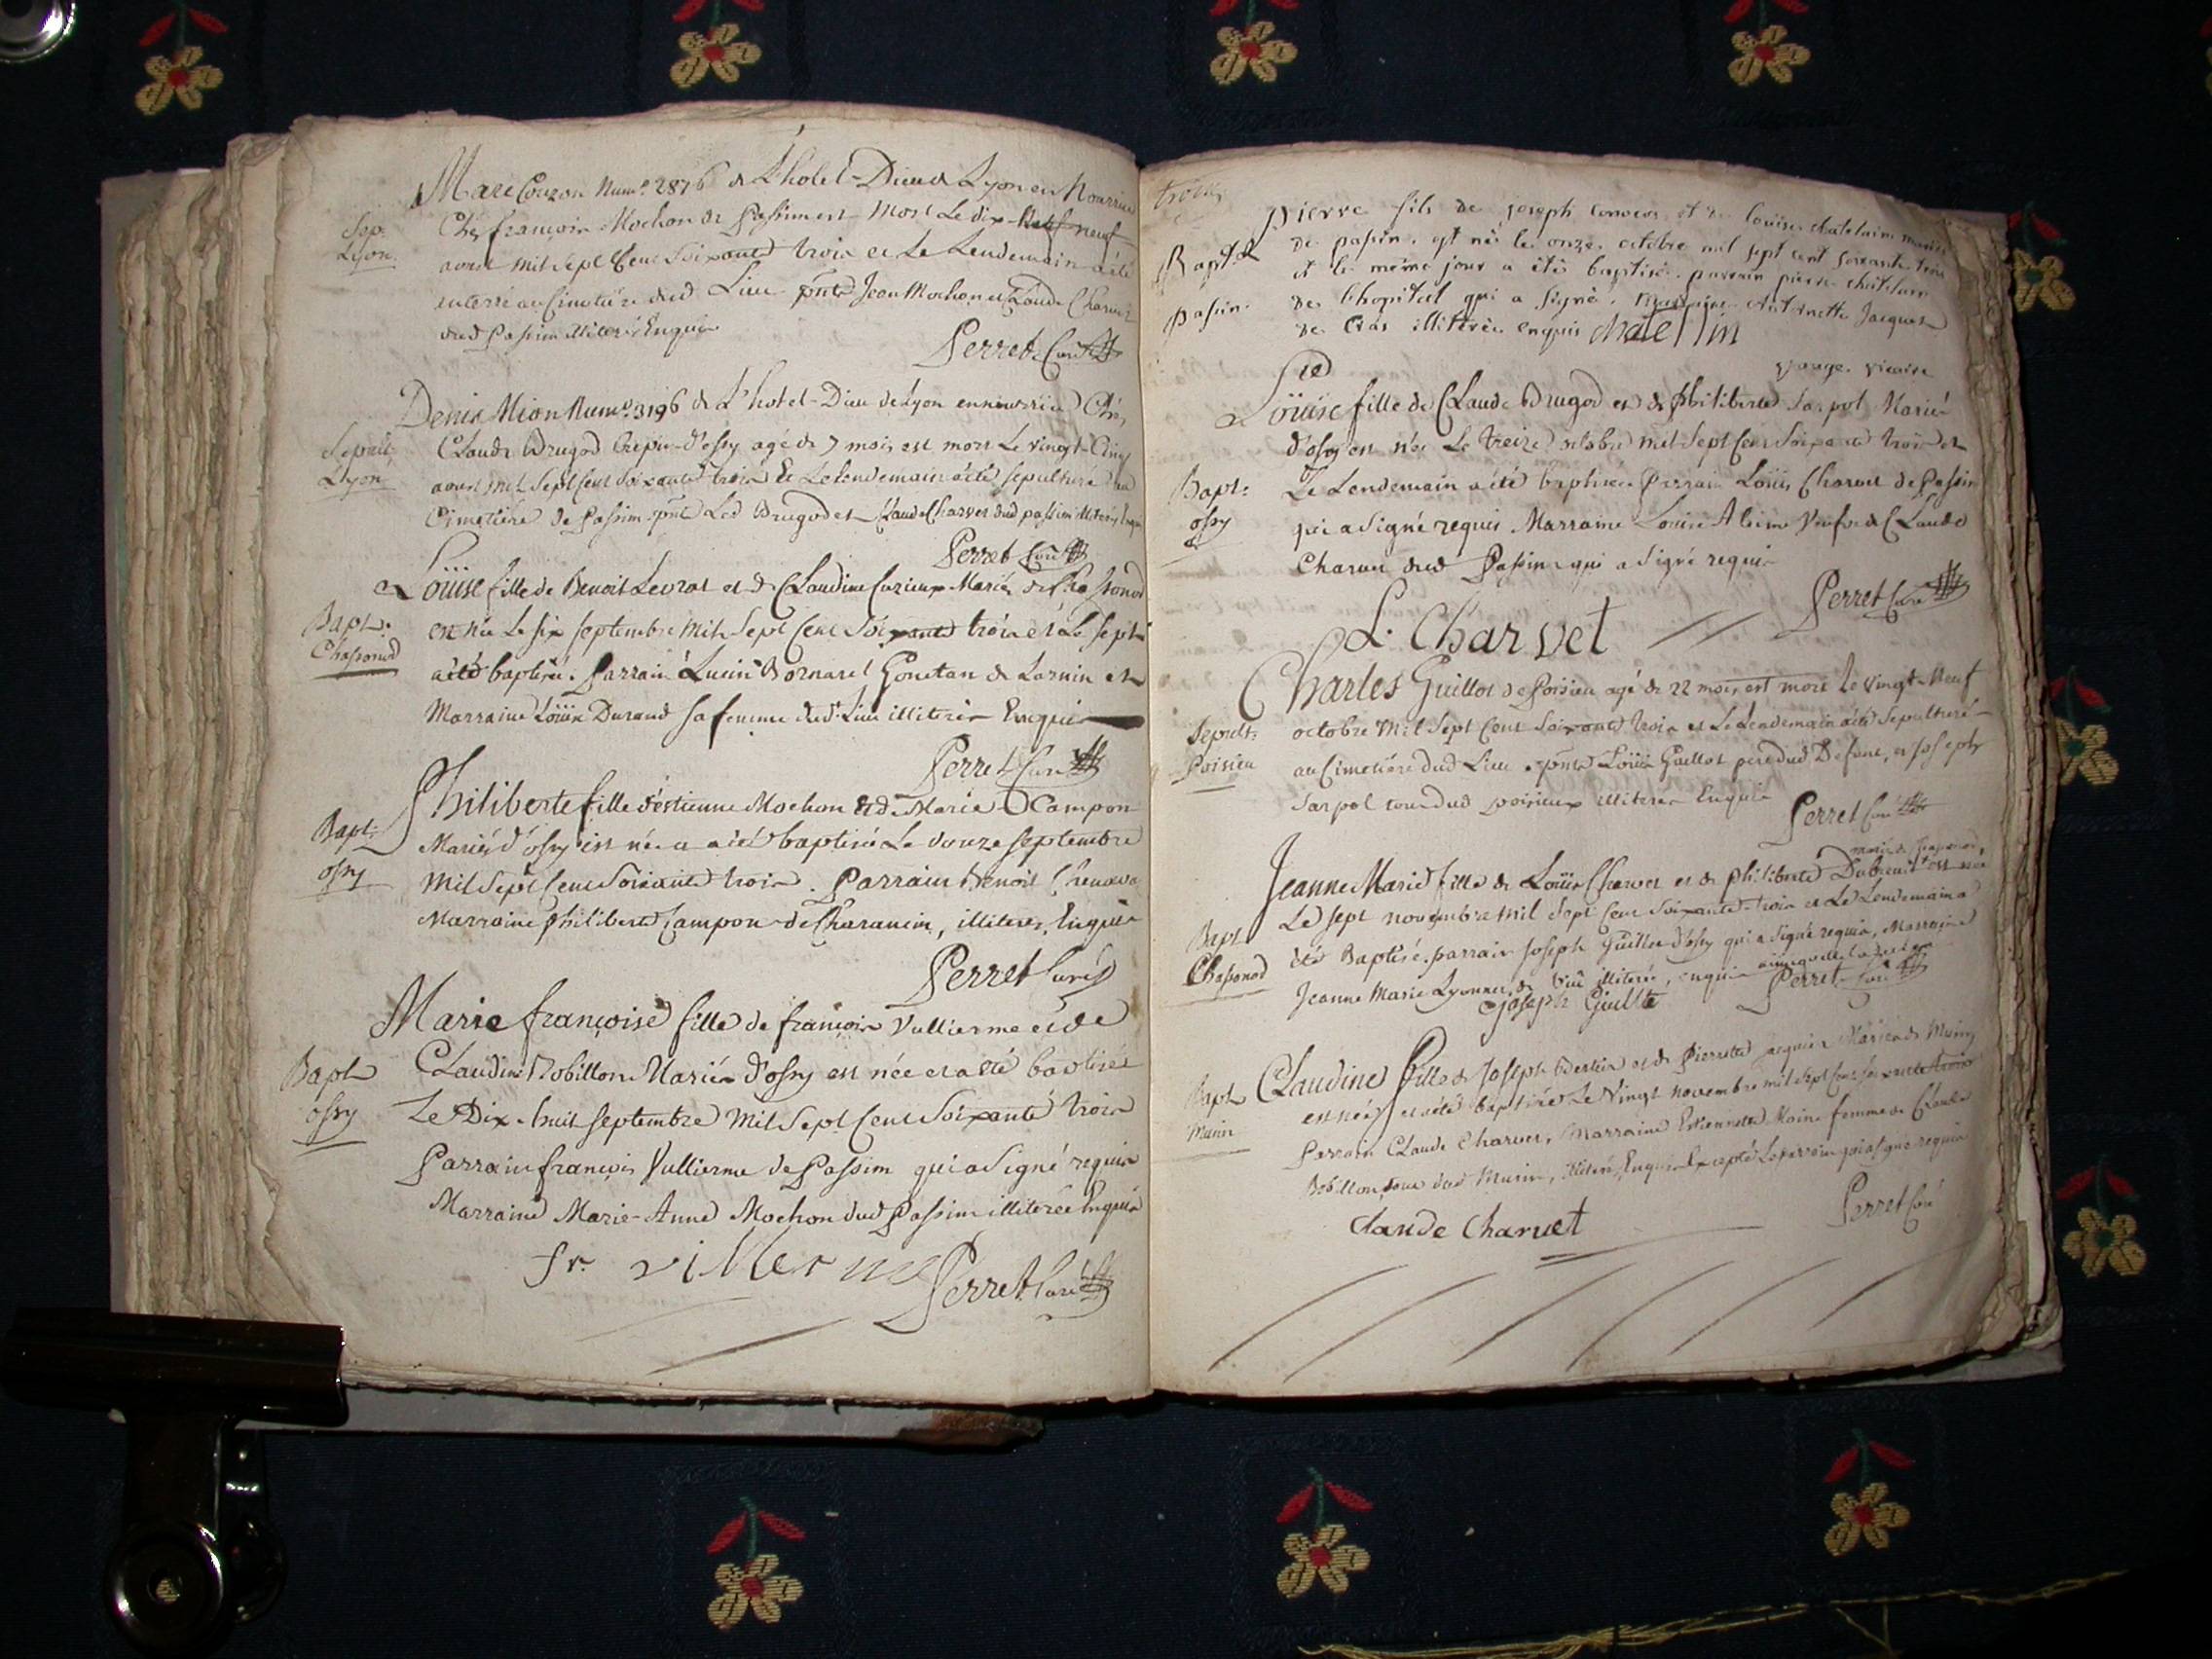 Marc Couzon Num.° 2876 de L'hotel-Dieu de Lyon en Nourrice
Sep.
Lyon.
Chés françois Mochon de Passim est Mort Le dix-neuf
aoust Mil Sept Cent Soixante trois et Le Lendemain a été
enterré au Cimetiére dud Lieu pñts Jean Mochon et Claude Charvet
dud Passim illiterés Enquis
Perret Curé
Denis Mion Num.° 3196 de L'hotel-Dieu de Lyon en nourrice Chés
Sepult:
Lyon
Claude Drugod Crepin d'ossy agé de 7 mois est mort Le vingt-Cinq
aoust Mil Sept Cent Soixante trois Et Le Lendemain a été sepulturé au
Cimetiére de Passim pñts Led Drugod et Claude Charvet dud passim illiterés Enquis
Perret Curé
Loüise fille de Benoit Levrat et de Claudine Curieux Mariés de Chassonod
Bapt:
Chassonod
est née Le six septembre Mil Sept Cent Soixante trois et Le sept
a été baptisée. Parrain Lucin Bornarel Gonetan de Larnin et
Marraine Loüise Durand sa femme dud. Lieu illiterés Enquis
Perret Curé
Philiberte fille d'éstienne Mochon et de Marie Campon
Bapt:
ossy
Mariés d'ossy est née a été baptisée Le douze septembre
Mil Sept Cent Soixante trois. Parrain Benoit
Marraine Philiberte Campon de Charancin, illiterés, Enquis
Perret Curé
Marie françoise fille de françois Vullierme et de
Bapt
ossy
Claudine Bobillon Mariés d'ossy est née et a été baptisée
Le Dix-huit septembre Mil Sept Cent Soixante trois
Parrain françois Vullierme de Passim qui a Signé requis
Marraine Marie-Anne Mochon dud Passim illiterée Enquis
fr. villerme
Perret Curé
trois
Pierre fils de joseph et de loüise chatelain mariés
Bapt.
passin.
de passin. est né le onze octobre mil sept cent soixante trois
et le même jour a été baptisé. parrain pierre châtelain
de l'hopital qui a signé. marraine Antoinette Jacquet
de Crás illiterée enquis chatellin
vicaire
Loüise fille de Claude Drugod et de Philiberte Sarpol Mariés
d'ossy est née Le treize octobre mil Sept Cent Soixante trois et
Bapt:
ossy
Le Lendemain a été baptisée Parrain Loüis Charvet de Passin
qui a Signé requis Marraine Louise Aleime Veufve de Claude
Charvet dud Passim qui a Signé requis
Perret Curé
L. Charvet
Charles Guillot de Poisieu agé de 22 mois est mort Le Vingt-Neuf
Sepult:
Poisieu
octobre Mil Sept Cent Soixante trois et Le Lendemain a été Sepulturé
au Cimetiére dud Lieu. pñts Loüis Guillot pere dud Defunt, et Joseph
Sarpol tous dud poisieux illiterés Enquis
Perret Curé
mariés de Chassonod,
Jeanne Marie fille de Loüis Charvet et de Philiberte Dubreuil est née
Bapt
Chassonod
Le sept novembre Mil Sept Cent Soixante-trois et Le Lendemain a
été Baptisé. parrain Joseph Guillot d'ossy qui a Signé requis, Marraine
Jeanne Marie Lyonnet, de Vuë illiterée, enquise
Joseph Guillot
Perret Curé
Claudine fille de Joseph Berlier et de Pierrette jacquier Mariés de Musin
Bapt
Musin
est née et a été baptisée Le Vingt novembre mil Sept Cent soixante trois
Parrain Claude Charvet, Marraine Estiennette Moine femme de Claude
Bobillon tous dud Musin, illiterés Enquis Excepté Le Parrain qui a signé requis
Claude Charvet
Perret Curé